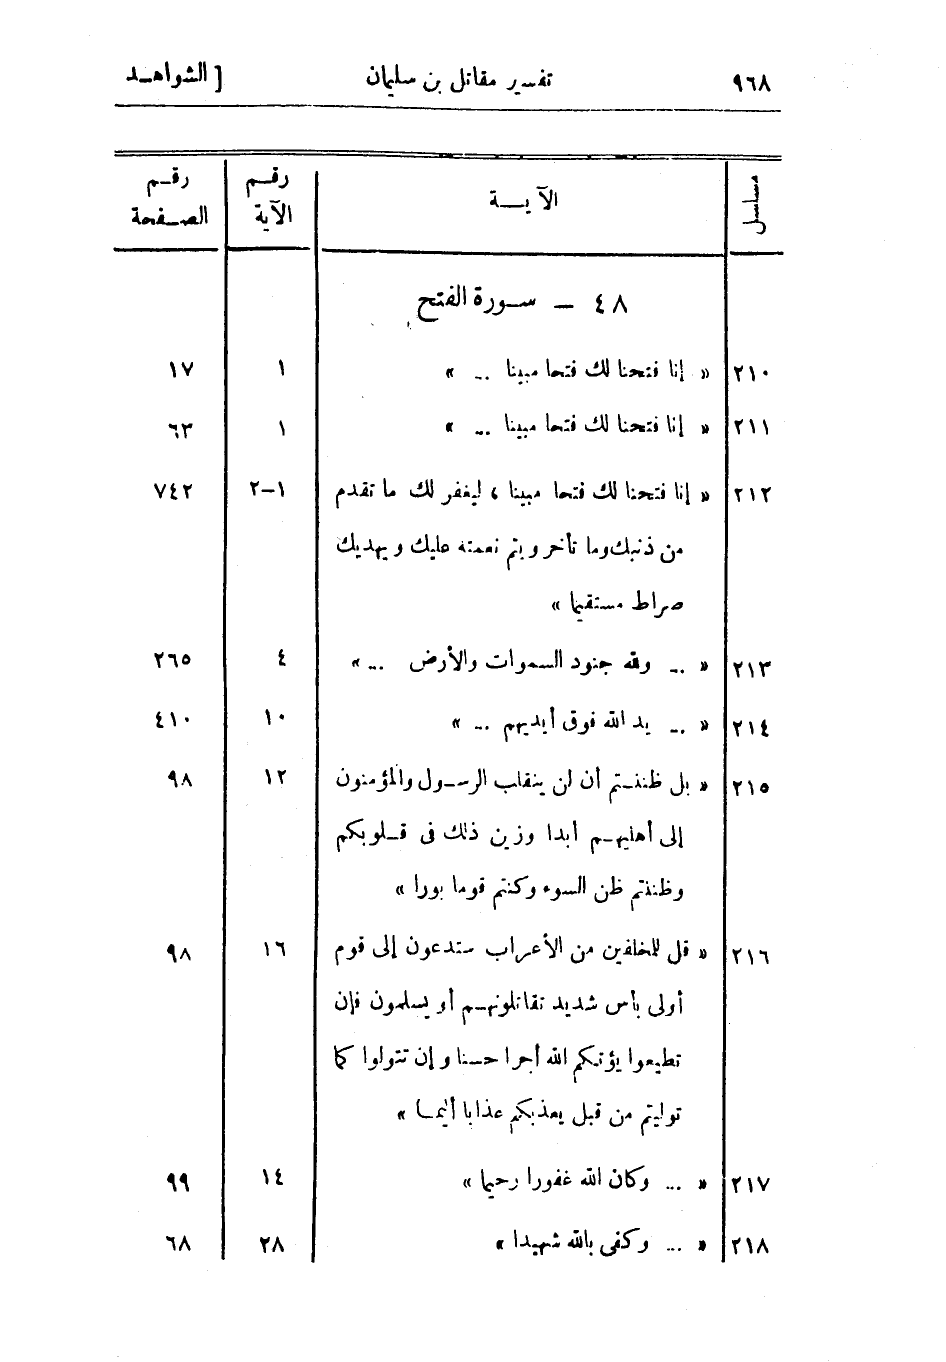 ٩٦٨ تفسير مقاتل بن سليمان [ الشواهـد
مسلسل الآيـــة رقـم الآية رقـم الصـفحة
٤٨ — سـورة الفتح
٢١٠ « إنا فتحنا لك فتحا مبينا ... » ١ ١٧
٢١١ « إنا فتحنا لك فتحا مبينا ... » ١ ٦٣
٢١٢ « إنا فتحنا لك فتحا مبينا ، ليغفر لك ما تقدم ١–٢ ٧٤٢
من ذنبك وما تأخر ويتم نعمته عليك ويهديك
صراط مستقيما »
٢١٣ « ... ولله جنود السموات والأرض ... » ٤ ٢٦٥
٢١٤ « ... يد الله فوق أيديهم ... » ١٠ ٤١٠
٢١٥ « بل ظننـتم أن لن ينقلب الرسـول والمؤمنون ١٢ ٩٨
إلى أهليهـم أبدا وزين ذلك فى قـلوبكم
وظننتم ظن السوء وكنتم قوما بورا »
٢١٦ « قل للمخلفين من الأعراب ستدعون إلى قوم ١٦ ٩٨
أولى بأس شديد تقاتلونهـم أو يسلمون فإن
تطيعوا يؤتكم الله أجرا حسنا وإن تتولوا كما
توليتم من قبل يعذبكم عذابا أليمـا »
٢١٧ « ... وكان الله غفورا رحيما » ١٤ ٩٩
٢١٨ « ... وكفى بالله شهيدا » ٢٨ ٦٨